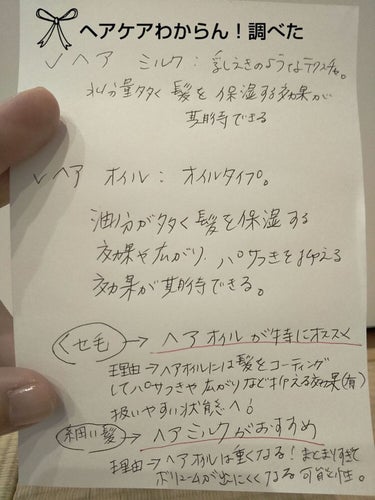 ヘアケアわからん！調べた
✓ヘア ミルク：乳えきのようなテクスチャ。
水分量多く髪を保湿する効果が
期待できる
✓ヘア オイル：オイルタイプ。
油分が多く髪を保湿する
効果や広がり、パサつきを抑える
効果が期待できる。
くせ毛→ヘアオイルが特にオススメ
理由→ヘアオイルには髪をコーティング
してパサつきや広がりなど抑える効果(有)
扱いやすい状態へ！
細い髪→ヘアミルクがおすすめ
理由→ヘアオイルは重くなる！まとまりすぎて
ボリュームが出にくくなる可能性。